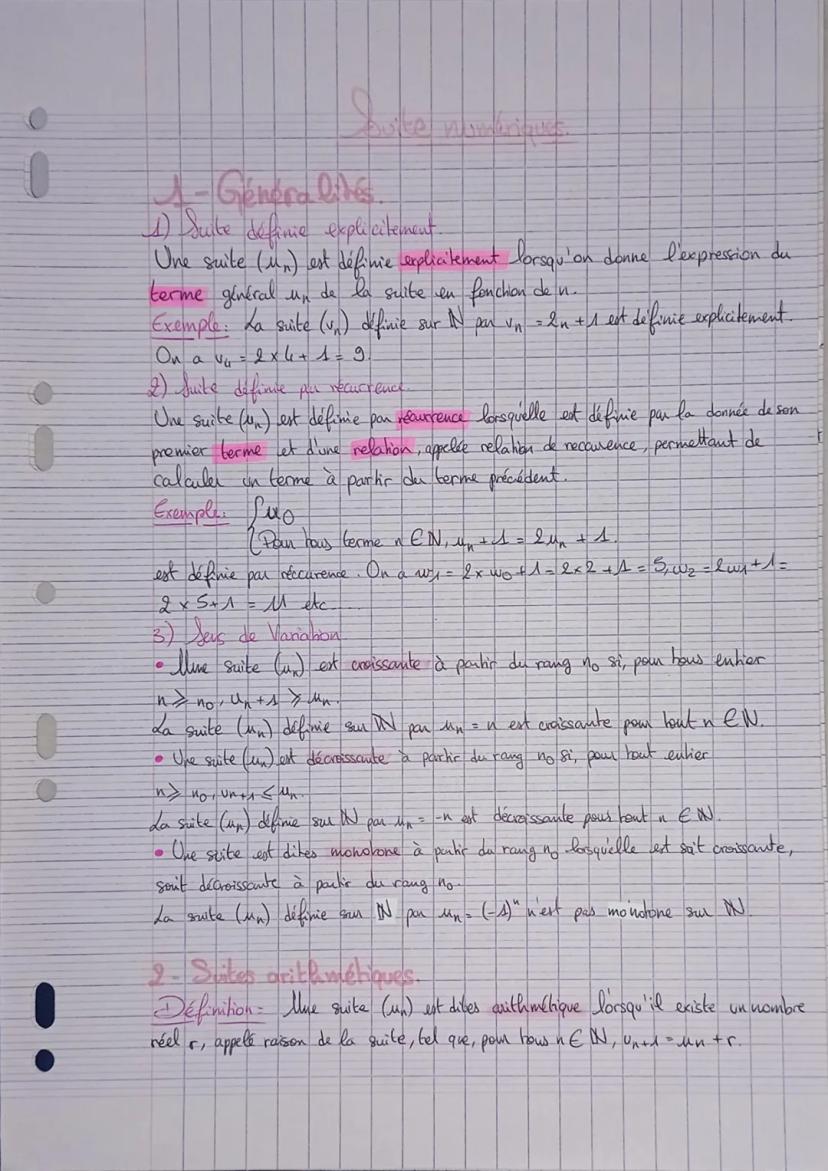 Suite numériques.
1 - Généralités.
1) Suite définie explicitement.
Une suite (un) est définie explicitement lorsqu'on donne l'expression du
terme général un de la suite en fonction de n.
Exemple : La suite (vn) définie sur ℕ par vn = 2n + 1 est définie explicitement.
On a v4 = 2 × 4 + 1 = 9.
2) Suite définie par récurrence.
Une suite (un) est définie par récurrence lorsqu'elle est définie par la donnée de son
premier terme et d'une relation, appelée relation de reccurence, permettant de
calculer un terme à partir du terme précédent.
Exemple : { u0
{ Pour tous terme n ∈ ℕ, un + 1 = 2un + 1.
est définie par réccurence. On a w1 = 2 × w0 + 1 = 2 × 2 + 1 = 5, w2 = 2w1 + 1 =
2 × 5 + 1 = 11 etc...
3) Sens de Variation
• Une suite (un) est croissante à partir du rang n0 si, pour tous entier
n ⩾ n0, un + 1 ⩾ un.
La suite (un) définie sur ℕ par un = n est croissante pour tout n ∈ ℕ.
• Une suite (un) est décroissante à partir du rang n0 si, pour tout entier
n ⩾ n0, un+1 ⩽ un.
La suite (un) définie sur ℕ par un = -n est décroissante pour tout n ∈ ℕ.
• Une suite est dites monotone à partir du rang n0 lorsqu'elle est soit croissante,
soit décroissante à partir du rang n0.
La suite (un) définie sur ℕ par un = (-1)ⁿ n'est pas monotone sur ℕ.
2 - Suites arithmétiques.
Définition = Une suite (un) est dites arithmétique lorsqu'il existe un nombre
réel r, appelé raison de la suite, tel que, pour tous n ∈ ℕ, un+1 = un + r.